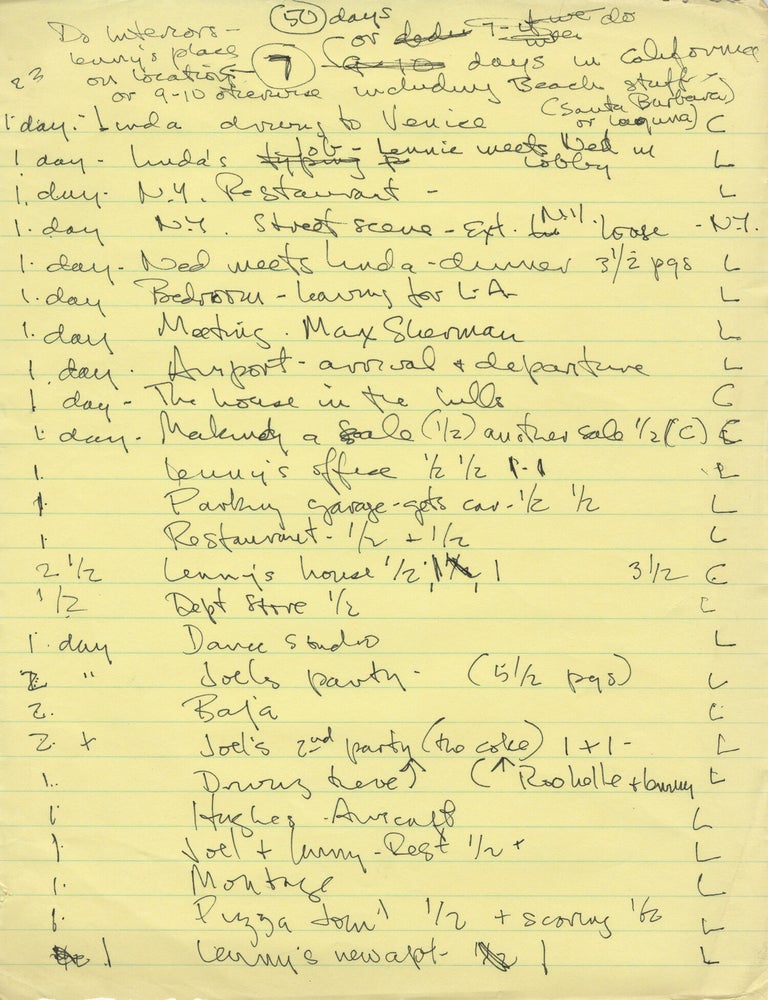 50 days
Do Interiors - or 7- if we do
Lenny's place 7 9-10 days in California
23 on location including Beach stuff -
or 9-10 otherwise (Santa Barbara)
or Laguna)
1 day - Linda driving to Venice C
1 day - Linda's job - Lennie meets Ned in lobby L
1. day - N.Y. Restaurant - L
1. day N.Y. Street scene - Ext. N.Y. loose - N.Y.
1. day - Ned meets Linda - dinner 3 1/2 pgs L
1. day Bedroom - leaving for L.A L
1. day Meeting. Max Sherman L
1. day. Airport - arrival + departure L
1 day - The house in the hills C
1. day - Making a sale (1/2) another sale 1/2 (C)
1. Lenny's office 1/2 1/2 1-1 L
1. Parking garage - gets car - 1/2 1/2 L
1. Restaurant - 1/2 + 1/2 L
2 1/2 Lenny's house 1/2, 1 3 1/2 C
1/2 Dept Store 1/2 C
1. day Dance Studio L
2 " Joel's party - (5 1/2 pgs) L
2. Baja C
2. + Joel's 2nd party (the coke) 1 + 1 - L
1.. Driving there ↑ (↑ Rochelle + Lenny L
1. Hughes Aircraft L
1. Joel + Lenny - Rest 1/2 + L
1. Montage L
1. Pizza 1/2 + scoring 1/2 L
1 Lenny's new apt - 1 L